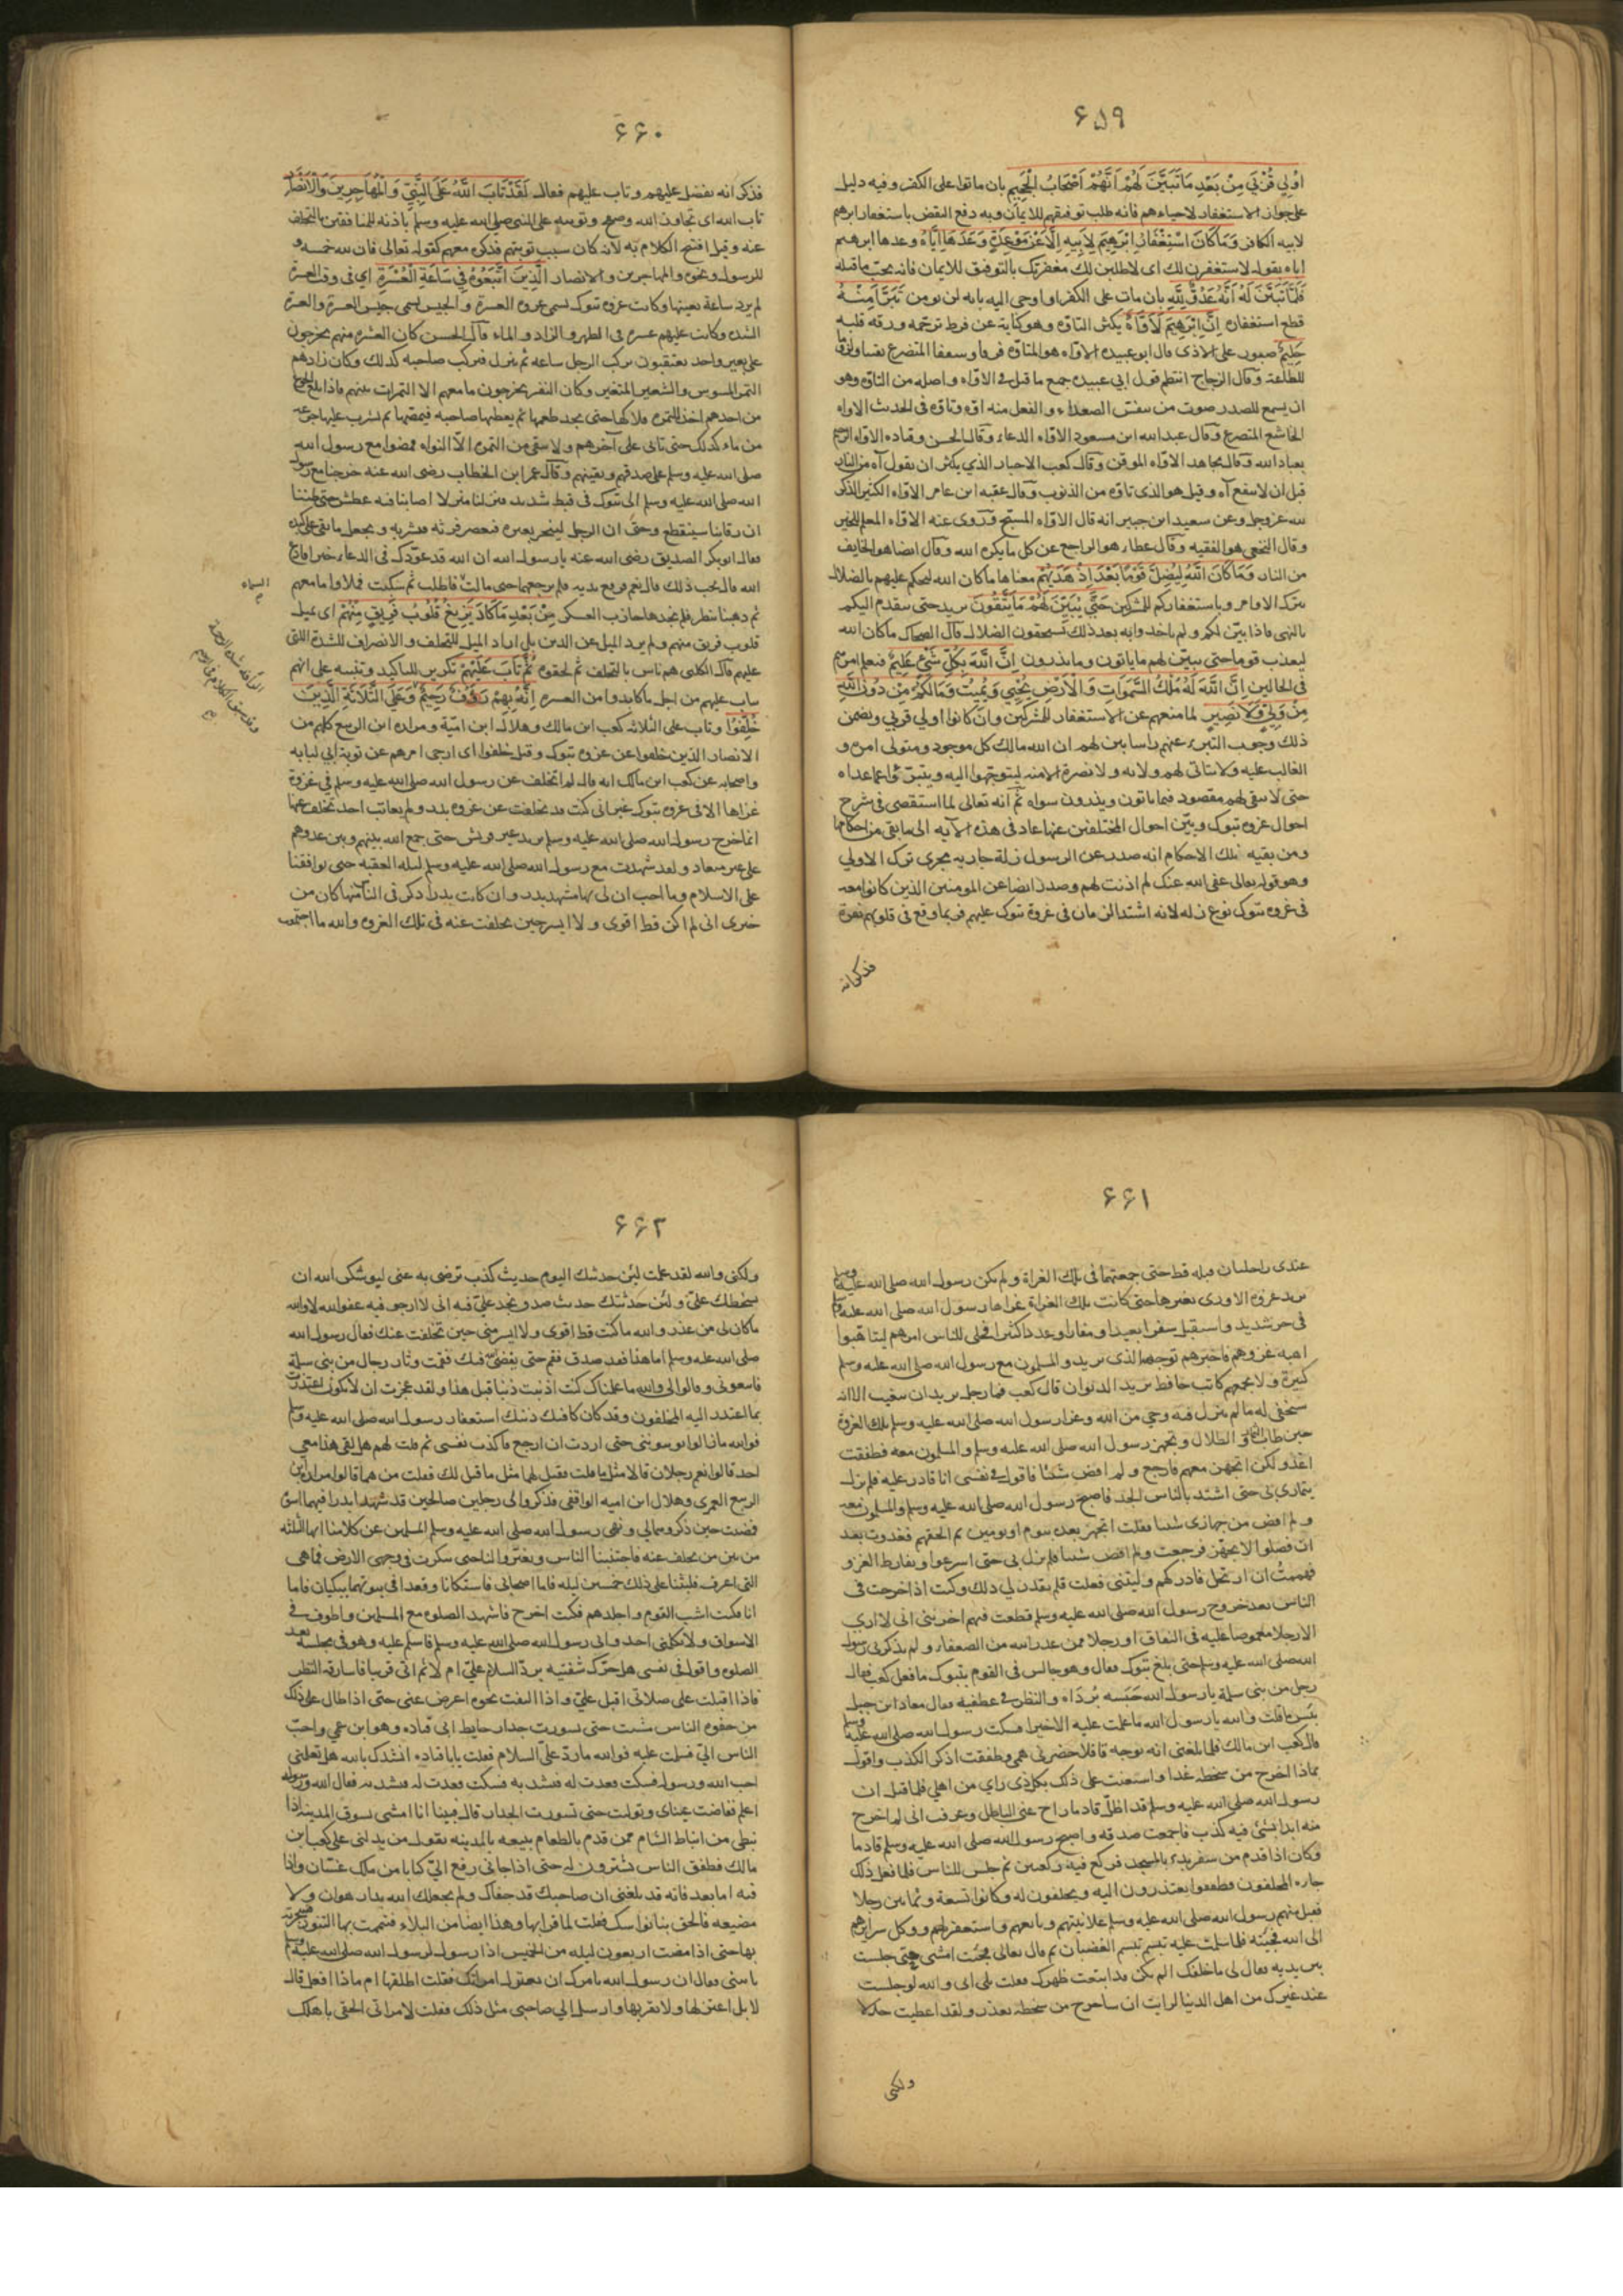 ۶۵۹
اُولِي قُرْبَي مِنْ بَعْدِ مَا تَبَيَّنَ لَهُمْ اَنَّهُمْ اَصْحَابُ الْجَحِيمِ بان ماتوا على الكفر وفيه دليل
على جواز الاستغفار لاحياءهم فانه طلب توفيقهم للايمان وبه دفع النقض باستغفار ابرهيم
لابيه الكافر وَمَا كَانَ اسْتِغْفَارُ اِبْرَهِيمَ لِاَبِيهِ اِلَّا عَنْ مَوْعِدَةٍ وَعَدَهَا اِيَّاهُ وعدها ابرهيم
اياه بقوله لاستغفرن لك اى لاطلبن لك مغفرتك بالتوفيق للايمان فانه يجبّ ما قبله
فَلَمَّا تَبَيَّنَ لَهُ اَنَّهُ عَدُوٌّ لِلَّهِ بان مات على الكفر او اوحى اليه بانه لن يومن تَبَرَّاَ مِنْهُ
قطع استغفاره اِنَّ اِبْرَهِيمَ لَاَوَّاهٌ يكثر التاوّه وهو كناية عن فرط ترحّمه ورقة قلبه
حَلِيمٌ صبور على الاذى قال ابو عبيده الاوّاه هو المتاوّه فرقا وسعفا المتضرع يقينا ولزوما
للطاعة وقال الزجاج انتظم قول ابى عبيده جمع ما قيل فى الاوّاه واصله من التاوّه وهو
ان يسمع للصدر صوت من تنفس الصعداء والفعل منه اوّه وتاوّه فى الحدث الاواه
الخاشع المتضرع وقال عبد الله ابن مسعود الاوّاه الدعاء وقال الحسن وقتاده الاوّاه الرحيم
بعباد الله وقال مجاهد الاوّاه الموقن وقال كعب الاحبار الذي يكثر ان يقول آه من النار
قبل ان لا ينفع آه وقيل هو الذى تاوّه من الذنوب وقال عقبه ابن عامر الاوّاه الكثير الذكر
لله عزوجل وعن سعيد ابن جبير انه قال الاوّاه المسبّح وروى عنه الاوّاه المعلم للخير
وقال النخعى هو الفقيه وقال عطاء هو الراجع عن كل ما يكره الله وقال ايضا هو الخايف
من النار وَمَا كَانَ اللَّهُ لِيُضِلَّ قَوْمًا بَعْدَ اِذْ هَدَيهُمْ معناها ما كان الله ليحكم عليهم بالضلال
بترك الاوامر وباستغفاركم للمشركين حَتَّى يُبَيِّنَ لَهُمْ مَا يَتَّقُونَ يريد حتى يتقدم اليكم
بالنهى فاذا بيّن لكم ولم ياخذوا به بعد ذلك تستحقون الضلال قال الضحاك ما كان الله
ليعذب قوما حتى يبيّن لهم ما ياتون وما يذرون اِنَّ اللَّهَ بِكُلِّ شَيْءٍ عَلِيمٌ فيعلم امرهم
فى الحالين اِنَّ اللَّهَ لَهُ مُلْكُ السَّمَوَاتِ وَالْاَرْضِ يُحْيِي وَيُمِيتُ وَمَا لَكُمْ مِنْ دُونِ اللَّهِ
مِنْ وَلِيٍّ وَلَا نَصِيرٍ لما منعهم عن الاستغفار للمشركين وان كانوا اولي قربي وتضمن
ذلك وجوب التبرء عنهم راسا بين لهم ان الله مالك كل موجود ومتولى امره و
الغالب عليه ولا يتاتى لهم ولايه ولا نصرة الا منه ليتوجّهوا اليه ويتبرّؤا عما عداه
حتى لا يبقى لهم مقصود فيما ياتون ويذرون سواه ثم انه تعالى لما استقصى فى شرح
احوال غزوه تبوك وبيّن احوال المختلفين عنها عاد فى هذه الآيه الى ما بقى من احكامها
ومن بقيه تلك الاحكام انه صدر عن الرسول زلة جاريه مجرى ترك الاولي
وهو قوله تعالى عفى الله عنك لم اذنت لهم وصدر ايضا عن المومنين الذين كانوا معه
فى غزوه تبوك نوع زله لانه اشتد الزمان فى غزوة تبوك عليهم فربما وقع فى قلوبهم نفرة
فذكر انه
۶۶۰
فذكر انه تفضل عليهم وتاب عليهم فقال لَقَدْ تَابَ اللَّهُ عَلَى النَّبِيِّ وَالْمُهَاجِرِينَ وَالْاَنْصَارِ
تاب الله اى تجاوز الله وصفح وتوبته على النبى صلى الله عليه وسلم باذنه للمنافقين بالتخلف
عنه وقيل افتتح الكلام به لانه كان سبب توبتهم فذكره معهم كقوله تعالى فان لله خمسه و
للرسول ونحوه والمهاجرين والانصار الَّذِينَ اتَّبَعُوهُ فِي سَاعَةِ الْعُسْرَةِ اي فى وقت العسرة
لم يرد ساعة بعينها وكانت غزوه تبوك تسمى غزوه العسرة والجيش تسمى جيش العسرة والعسرة
الشده وكانت عليهم عسره فى الظهر والزاد والماء قال الحسن كان العشره منهم يخرجون
على بعير واحد يعتقبون يركب الرجل ساعه ثم ينزل فيركب صاحبه كذلك وكان زادهم
التمر المسوس والشعير المتغير وكان النفر يخرجون ما معهم الا التمرات بينهم فاذا بلغ الجوع
من احدهم اخذ التمره فلاكها حتى يجد طعمها ثم يعطيها صاحبه فيمصّها ثم يشرب عليها جرعه
من ماء كذلك حتى تاتى على آخرهم ولا يبقى من التمره الا النواه فمضوا مع رسول الله
صلى الله عليه وسلم على صدقهم ويقينهم وقال عمر ابن الخطاب رضى الله عنه خرجنا مع رسول
الله صلى الله عليه وسلم الى تبوك فى قيظ شديد فنزلنا منزلا اصابنا فيه عطش حتى ظننا
ان رقابنا سينقطع وحتى ان الرجل لينحر بعيره فيعصر فرثه فيشربه ويجعل ما بقى على كبده
فقال ابوبكر الصديق رضى الله عنه يا رسول الله ان الله قد عوّدك فى الدعاء خيرا فادع
الله قال تحب ذلك قال نعم فرفع يديه فلم يرجعهما حتى مالت فاطلب ثم سكبت فملاوا ما معهم
السماء
ثم ذهبنا ننظر فلم نجدها جازت العسكر مِنْ بَعْدِ مَا كَادَ يَزِيغُ قُلُوبُ فَرِيقٍ مِنْهُمْ اى تميل
قلوب فريق منهم ولم يرد الميل عن الدين بل اراد الميل للتخلف والانصراف للشدة اللتى
عليهم قال الكلبى هم ناس بالتخلف ثم لحقوه ثُمَّ تَابَ عَلَيْهِمْ تكرير للتاكيد وتنبيه على انهم
تاب عليهم من اجل ما كابدوا من العسره اِنَّهُ بِهِمْ رَؤُفٌ رَحِيمٌ وَعَلَى الثَّلَاثَةِ الَّذِينَ
خُلِّفُوا وتاب على الثلاثه كعب ابن مالك وهلال ابن اميّة ومراره ابن الربيع كلهم من
الانصار الذين خلفوا عن غزوه تبوك وقيل خلفوا اى ارجى امرهم عن توبة ابى لبابه
واصحابه عن كعب ابن مالك انه قال لم اتخلف عن رسول الله صلى الله عليه وسلم فى غزوة
غزاها الا فى غزوه تبوك غير انى كنت قد تخلفت عن غزوه بدر ولم يعاتب احد تخلف عنها
انما خرج رسول الله صلى الله عليه وسلم يريد عير قريش حتى جمع الله بينهم وبين عدوهم
على غير ميعاد ولقد شهدت مع رسول الله صلى الله عليه وسلم ليله العقبه حين تواثقنا
على الاسلام وما احب ان لى بها مشهد بدر وان كانت بدرا ذكر فى الناس منها كان من
خبرى انى لم اكن قط اقوى ولا ايسر حين تخلفت عنه فى تلك الغزوه والله ما اجتمعت
۶۶۱
عندى راحلتان قبله قط حتى جمعتهما فى تلك الغزاة ولم يكن رسول الله صلى الله عليه وسلم
يريد غزوه الا ورى بغيرها حتى كانت تلك الغزاة غزاها رسول الله صلى الله عليه وسلم
فى حر شديد واستقبل سفرا بعيدا ومفازا وعددا كثيرا فجلى للناس امرهم ليتاهبوا
اهبه غزوهم فاخبرهم توجهه الذى يريد والمسلمون مع رسول الله صلى الله عليه وسلم
كثيرة ولا يجمعهم كتاب حافظ يريد الديوان قال كعب فما رجل يريد ان يتغيب الا انه
سيخفى له ما لم ينزل فيه وحي من الله وغزا رسول الله صلى الله عليه وسلم تلك الغزوة
حين طاب الثمار والظلال وتجهز رسول الله صلى الله عليه وسلم والمسلمون معه فطفقت
اغدو لكى اتجهز معهم فارجع ولم اقض شيئا فاقول فى نفسى انا قادر عليه فلم يزل
يتمادى بى حتى اشتد بالناس الجد فاصبح رسول الله صلى الله عليه وسلم والمسلمون معه
ولم اقض من جهازى شيئا فقلت اتجهز بعده بيوم او يومين ثم الحقهم فغدوت بعد
ان فصلوا لاتجهّز فرجعت ولم اقض شيئا فلم يزل بى حتى اسرعوا وتفارط الغزو
فهممتُ ان ارتحل فادركهم وليتنى فعلت فلم يقدر لي ذلك وكنت اذا خرجت فى
الناس بعد خروج رسول الله صلى الله عليه وسلم فطفت فيهم احزننى انى لا ارى
الا رجلا مغموصا عليه فى النفاق او رجلا ممن عذر الله من الضعفاء ولم يذكرنى رسول
الله صلى الله عليه وسلم حتى بلغ تبوك فقال وهو جالس فى القوم بتبوك ما فعل كعب فقال
رجل من بنى سلمة يا رسول الله حبسه بُرداه والنظر فى عطفيه فقال معاذ ابن جبل
بئس ما قلت والله يا رسول الله ما علمت عليه الا خيرا فسكت رسول الله صلى الله عليه وسلم
قال كعب ابن مالك فلما بلغنى انه توجه قافلا حضرنى همى وطفقت اذكر الكذب واقول
بماذا اخرج من سخطه غدا واستعنت على ذلك بكل ذى راي من اهلي فلما قيل ان
رسول الله صلى الله عليه وسلم قد اظلّ قادما راح عنى الباطل وعرفت انى لم اخرج
منه ابدا بشئ فيه كذب فاجمعت صدقه واصبح رسول الله صلى الله عليه وسلم قادما
وكان اذا قدم من سفر بدء بالمسجد فركع فيه ركعتين ثم جلس للناس فلما فعل ذلك
جاءه المخلفون فطفقوا يعتذرون اليه ويحلفون له وكانوا تسعة وثمانين رجلا
فقبل منهم رسول الله صلى الله عليه وسلم علانيتهم وبايعهم واستغفر لهم ووكل سرايرهم
الى الله فجئته فلما سلمت عليه تبسم تبسم الغضبان ثم قال تعالى فجئت امشى حتى جلست
بين يديه فقال لى ما خلفك الم تكن قد ابتعت ظهرك فقلت بلى انى والله لو جلست
عند غيرك من اهل الدنيا لرايت ان ساخرج من سخطه بعذر ولقد اعطيت جدلا
ولكنى
۶۶۲
ولكنى والله لقد علمت لئن حدثتك اليوم حديث كذب ترضى به عنى ليوشكن الله ان
يسخطك عليّ ولئن حدثتك حديث صدق تجد عليّ فيه انى لا ارجو فيه عفو الله لا والله
ما كان لى من عذر والله ما كنت قط اقوى ولا ايسر منى حين تخلفت عنك فقال رسول الله
صلى الله عليه وسلم اما هذا فقد صدق فقم حتى يقضى الله فيك فقمت وثار رجال من بنى سلمة
فاتبعونى وقالوا لى والله ما علمناك كنت اذنبت ذنبا قبل هذا ولقد عجزت ان لا تكون اعتذرت
بما اعتذر اليه المخلفون وقد كان كافيك ذنبك استغفار رسول الله صلى الله عليه وسلم
فوالله ما زالوا يونبوننى حتى اردت ان ارجع فاكذب نفسى ثم قلت لهم هل لقى هذا معى
احد قالوا نعم رجلان قالا مثل ما قلت فقيل لهما مثل ما قيل لك فقلت من هما قالوا مراره ابن
الربيع العمرى وهلال ابن اميه الواقفى فذكروا لى رجلين صالحين قد شهدا بدرا فيهما اسوة
فمضيت حين ذكروهما لي ونهى رسول الله صلى الله عليه وسلم المسلمين عن كلامنا ايها الثلثه
من بين من تخلف عنه فاجتنبنا الناس وتغيّروا لنا حتى تنكرت فى وجهى الارض فما هى
التى اعرف فلبثنا على ذلك خمسين ليله فاما صحابى فاستكانا وقعدا فى بيوتهما يبكيان فاما
انا فكنت اشب القوم واجلدهم فكنت اخرج فاشهد الصلوه مع المسلمين واطوف فى
الاسواق ولا يكلمنى احد واتى رسول الله صلى الله عليه وسلم فاسلم عليه وهو فى مجلسه بعد
الصلوه واقول فى نفسى هل حرّك شفتيه بردّ السلام عليّ ام لا ثم اتى قريبا فاسارقه النظر
فاذا اقبلت على صلاتى اقبل عليّ واذا التفت نحوه اعرض عنى حتى اذا طال على ذلك
من جفوه الناس مشيت حتى تسورت جدار حايط ابى قتاده وهو ابن عمي واحبّ
الناس اليّ فسلمت عليه فوالله ما ردّ عليّ السلام فقلت يابا قتاده انشدك بالله هل تعلمنى
احب الله ورسوله فسكت فعدت له فنشدته فسكت فعدت له فنشدته فقال الله ورسوله
اعلم ففاضت عيناى وتوليت حتى تسورت الجدار قال فبينا انا امشى بسوق المدينه اذا
نبطى من انباط الشام ممن قدم بالطعام يبيعه بالمدينه يقول من يدلنى على كعب ابن
مالك فطفق الناس يشيرون له حتى اذا جانى رفع اليّ كتابا من ملك غسّان واذا
فيه اما بعد فانه قد بلغنى ان صاحبك قد جفاك ولم يجعلك الله بدار هوان ولا
مضيعه فالحق بنا نواسك فقلت لما قراتها وهذا ايضا من البلاء فتيممت بها التنور فسجرته
بها حتى اذا مضت اربعون ليله من الخمسين اذا رسول لرسول الله صلى الله عليه وسلم
ياتينى فقال ان رسول الله يامرك ان تعتزل امراتك فقلت اطلقها ام ماذا افعل قال
لا بل اعتزلها ولا تقربها وارسل الى صاحبي مثل ذلك فقلت لامراتى الحقى باهلك